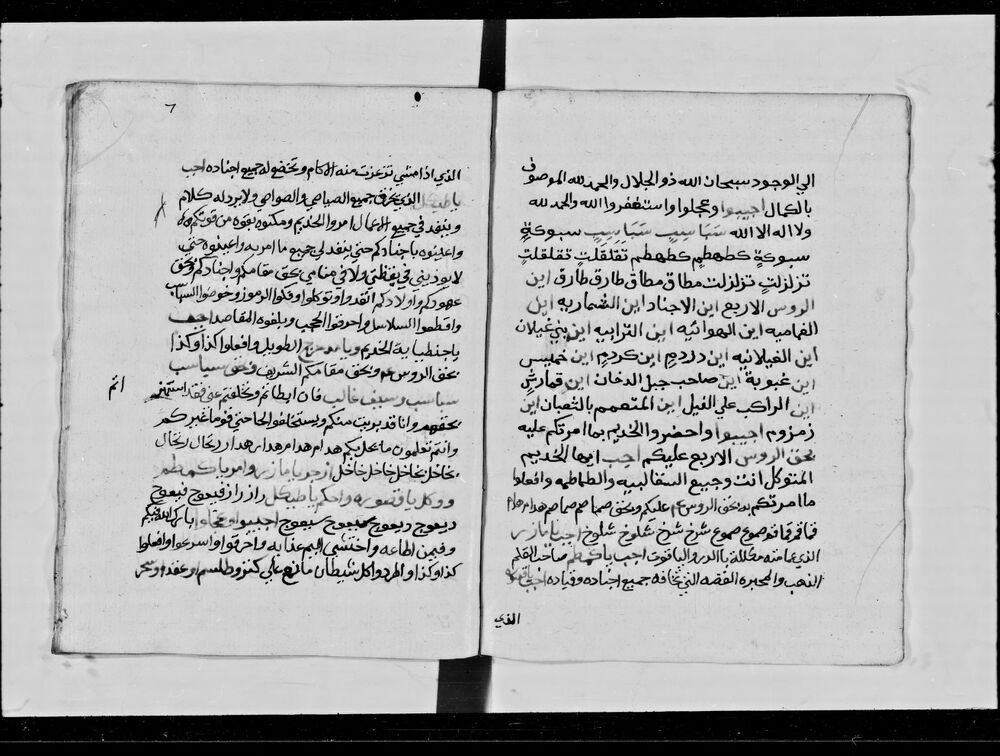 الي الوجود سبحان الله ذو الجلال والحمد لله الموصوف
بالكمال اجيبوا وعجلوا واستغفروا الله والحمد لله
ولا اله الا الله سَبَاسِيبٍ سَبَاسِيبٍ سبوكةٍ
سبوكةٍ كطهطمٍ كطهطم تقلقلتٍ تقلقلتٍ
تزلزلتٍ تزلزلت مطاق مطاق طارق طارق اين
الروس الاربع اين الاجناد اين الشماريه اين
الغماميه اين الهوائيه اين الترابيه اين بني غيلان
اين الغيلانيه اين دردم اين كردم اين خميس
اين غبوبة اين صاحب جبل الدخان اين قمارش
اين الراكب علي الفيل اين المتعمم بالثعبان اين
زمزوم اجيبوا واحضروا الخديم بما امرتكم عليه
بحق الروس الاربع عليكم اجب ايها الخديم
المتوكل انت وجميع السقالبيه والطماطمه وافعلوا
ما امرتكم به بحق الروس عليكم وبحق صماصم صماصم هدام هدام
صموع صموع شرخ شرخ شلوخ شلوخ اجب يا مازر
الذي عمامته مكلله بالدر والياقوت اجب يا كمطم صاحب القلم
الذهب والمحبره الفضه التي تخافه جميع اجناده وقياده اجب
الذي
٦
الذي اذا مشي تزعزعت منه الاكام وتخضع له جميع اجناده اجب
يا طيكل الذي يخرق جميع الصياصي والصواصي ولا يرد له كلام
وينفد في جميع الاعمال امروا الخديم ومكنوه بقوه من قوتكم
واعينوه باجنادكم حتي ينفد لي جميع ما امر به واعينوه حتي
لا يوديني في يقظتي ولا في منامي بحق مقامكم واجنادكم وبحق
عهودكم واولادكم انقدوا وتوكلوا وفكوا الرموز وخوضوا السباسب
واقطعوا السلاسل واحرقوا الحجب وبلغوه المقاصد اجب
يا جنطيا بة الخديم ويا الطويل وافعلوا كذا وكذا
بحق الروس وبحق مقامكم الشريف وبحق سباسب
سباسب وسيف غالب فان ابطاتم وتخلفتم عني فقد استهنتم
اتم
بحقهم وانا قد بريت منكم ويستحلفوا الحاحتي قوما غيركم
وانتم تعلمون ما يحل بكم هدام هدام هدار هدار دخال دخال
نخاخل نخاخل خاخل خاخل ازجر يا مازر وامر يا كمطم
ووكل يا قسوره واحكم يا طيكل راز راز فيعوج فيعوج
ديعوج ديعوج سيعوج سيعوج اجيبوا وعجلوا بارك الله فيكم
وفيمن اطاعه واختشي اليم عذابه واحرقوا واسرعوا وافعلوا
كذا وكذا واطردوا كل شيطان مانع علي كنز وطلسم او عقد او سحر